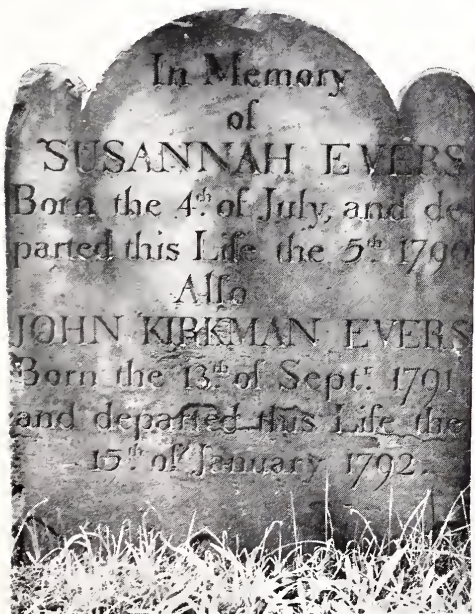 In Memory
of
SUSANNAH EVERS
Born the 4th of July, and de
parted this Life the 5th 1790
Alſo
JOHN KIRKMAN EVERS
Born the 13th of Septr 1791
and departed this Life the
15th of January 1792.